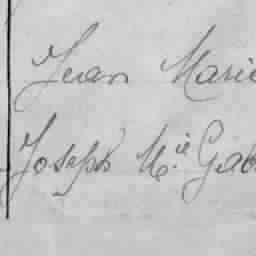 Jean Marie
Joseph M.ie Gab